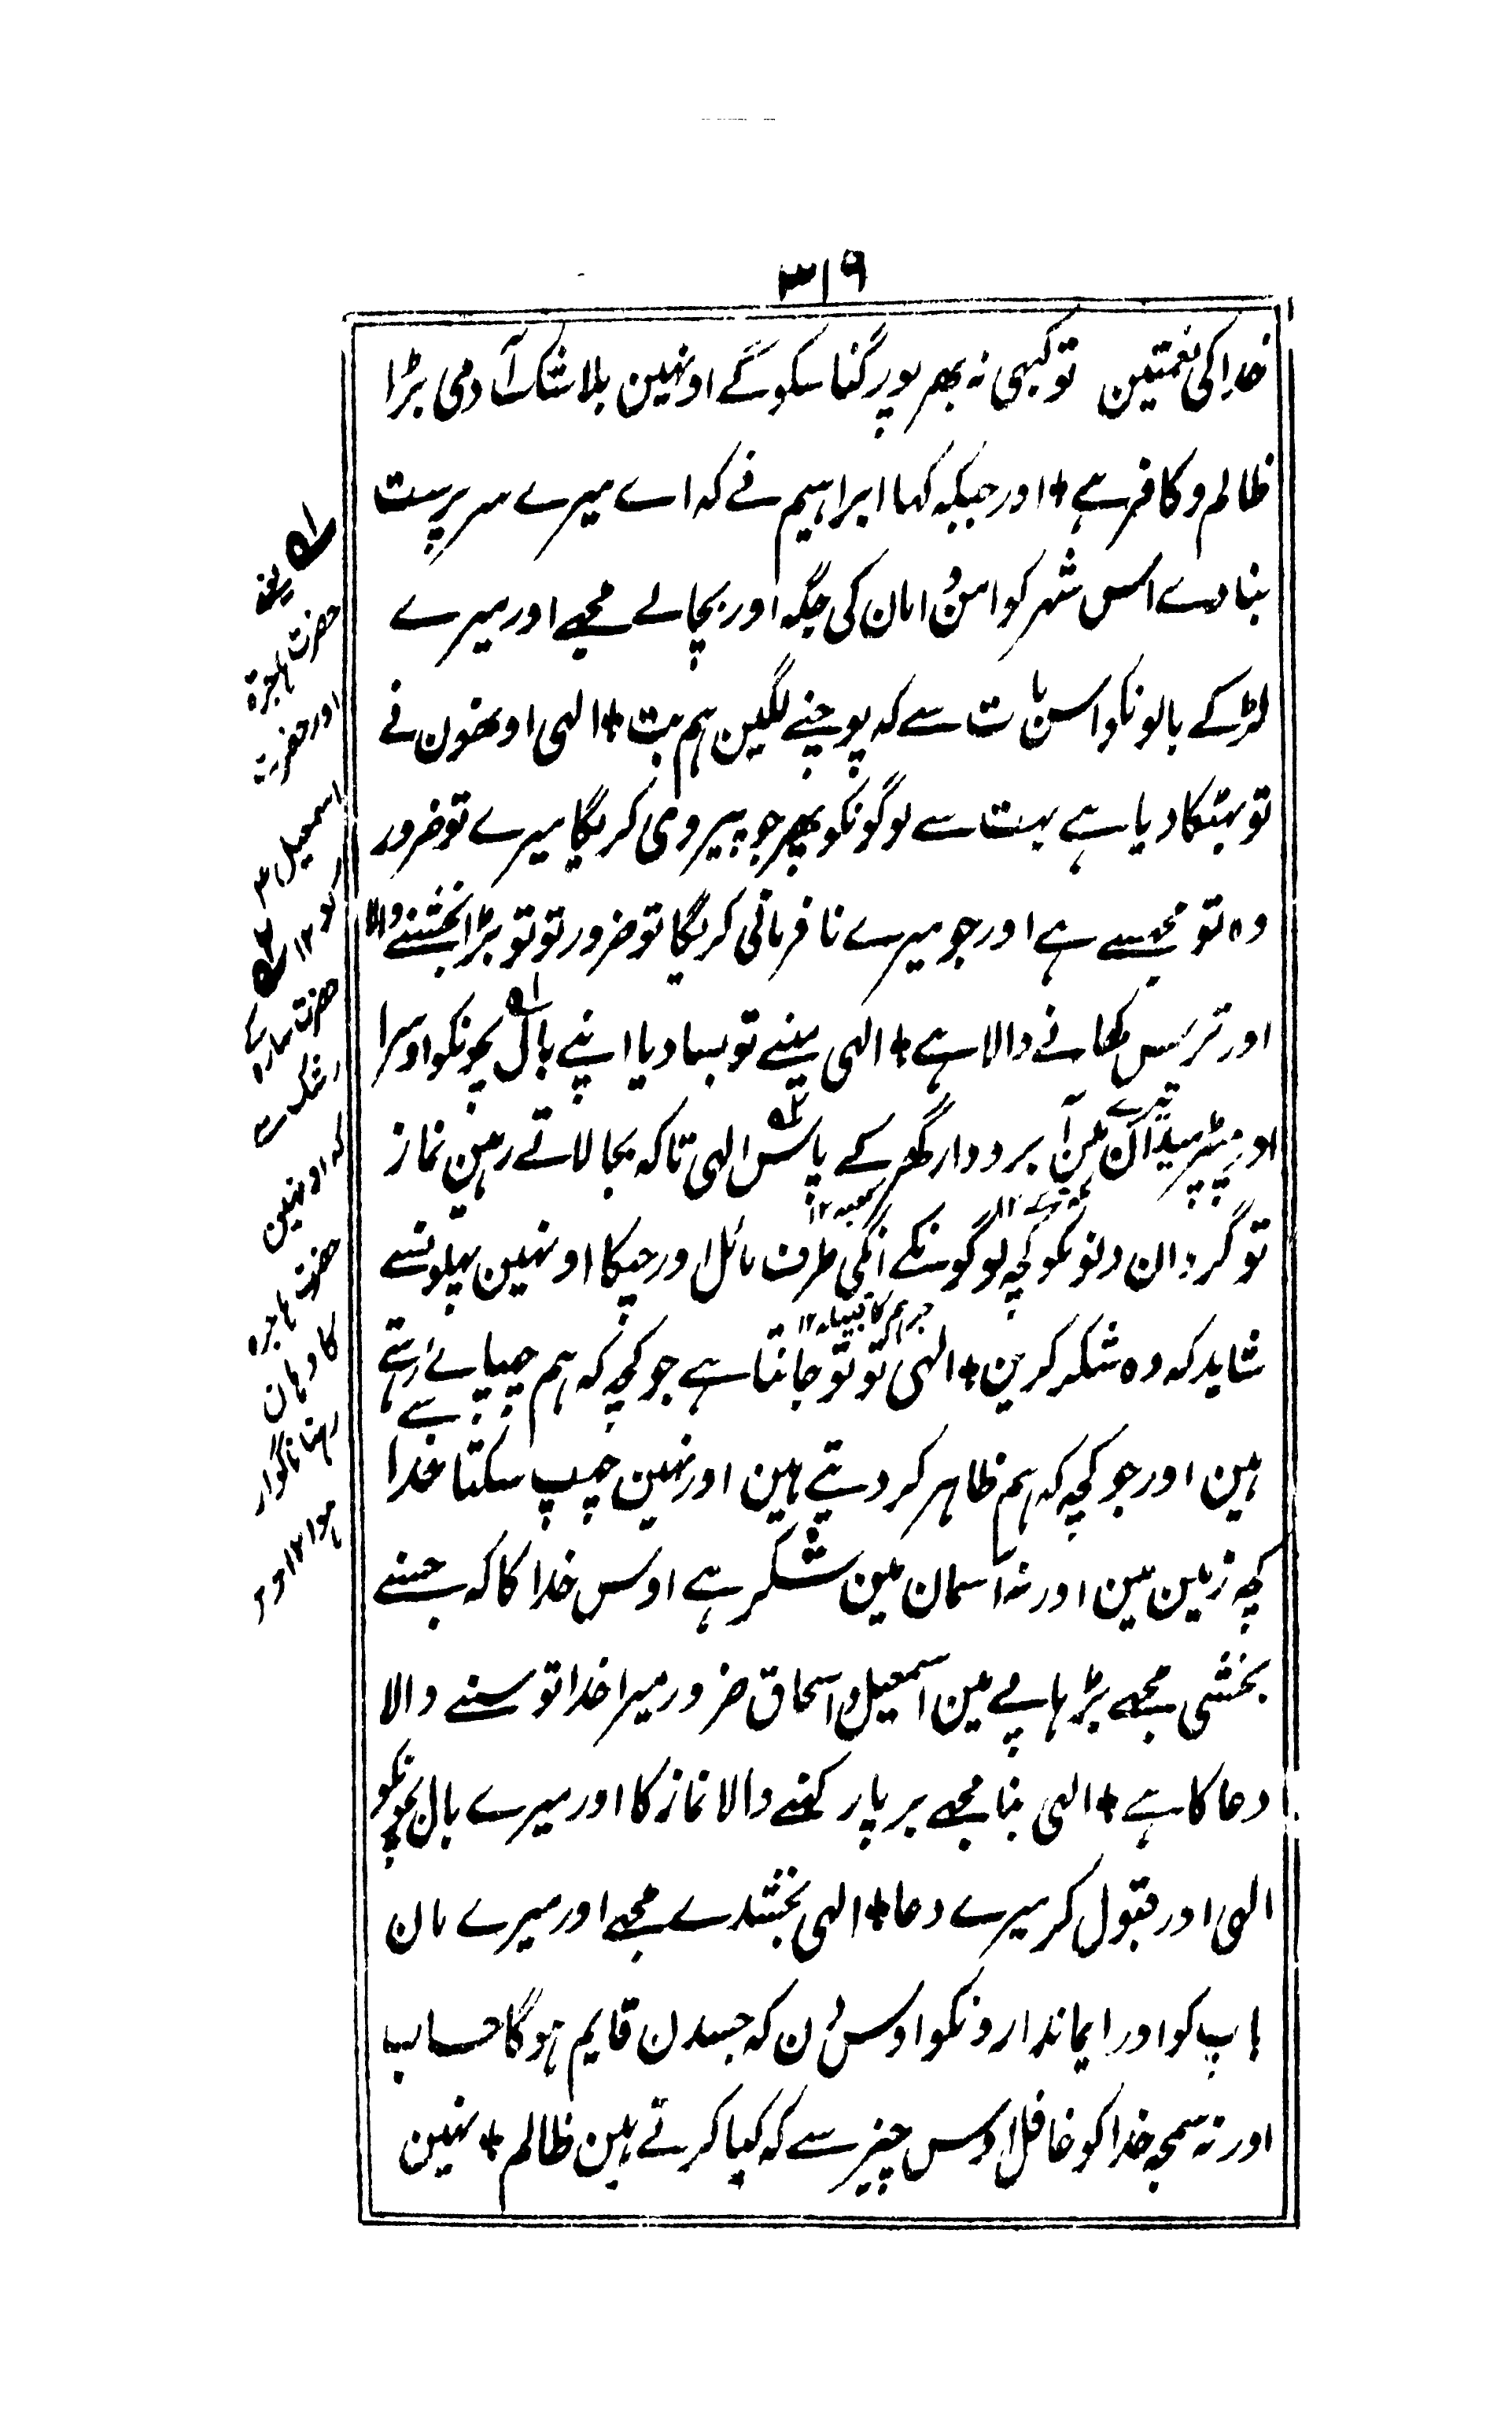 ۳۱۹
خدا کی نعمتین تو کبہی نہ بھر پور گنا سکو گے اونہین بلا شک آدمی بڑا
ظالم و کافر ہے + اور جبکہ کہا ابراہیم نے کہ اے میرے سر پرست
بنا دے اس شہر کو امن و امان کی جگہ اور بچالے مجھے اور میرے
لڑکے بالونکو اس بات سے کہ پوجنے لگین ہم بت + الہی اونھون نے
تو بہٹکا دیا ہے بہت سے لوگونکو پھر جو پیروی کریگا میرے تو ضرور
وہ تو مجھسے ہے اور جو میرے نافرمانی کریگا تو ضرور تو تو بڑا بخشنے والا
اور ترس کھانے والا ہے + الہی مینے تو بسا دیا اپنے بال بچونکو اوسرا
اور پٹپر میدان مین تیرے آبرودار گھر کے پاس الہی تاکہ بجا لاتے رہین نماز
کعبہ ۱۲
تو گردان دلونکو کچہ لوگونکے انکی طرف مائل اور چہکا اونہین پہلونسے
جرہم کا قبیلہ ۱۲
شاید کہ وہ شکر کرین + الہی تو تو جانتا ہے جو کچہ کہ ہم چہپائے رہتے
ہین اور جو کچہ کہ ہم ظاہر کر دیتے ہین اور نہین چہپ سکتا خدا سے
کچہ زمین مین اور نہ آسمان مین شکر ہے اوس خدا کا کہ جسنے
بخشی مجھے بڑہاپے مین اسمعیل و اسحاق ضرور میرا خدا تو سننے والا
دعا کا ہے + الہی بنا مجھے برپا رکھنے والا نماز کا اور میرے بال بچونکو
الہی اور قبول کر میرے دعا + الہی بخشدے مجھے اور میرے مان
باپ کو اور ایماندارونکو اوس دن کہ جسدن قایم ہوگا حساب
اور نہ سمجہ خدا کو غافل اوس چیز سے کہ کیا کرتے ہین ظالم + نہین
لہ یعنے
حضرت ہاجرہ
اور حضرت
اسمعیل ؑ
کو ۱۲
حضرت سارہ کے
رشک سے
کہ اونہین
حضرت ہاجرہ
کا وہان
رہنا ناگوار
ہوا ۱۲